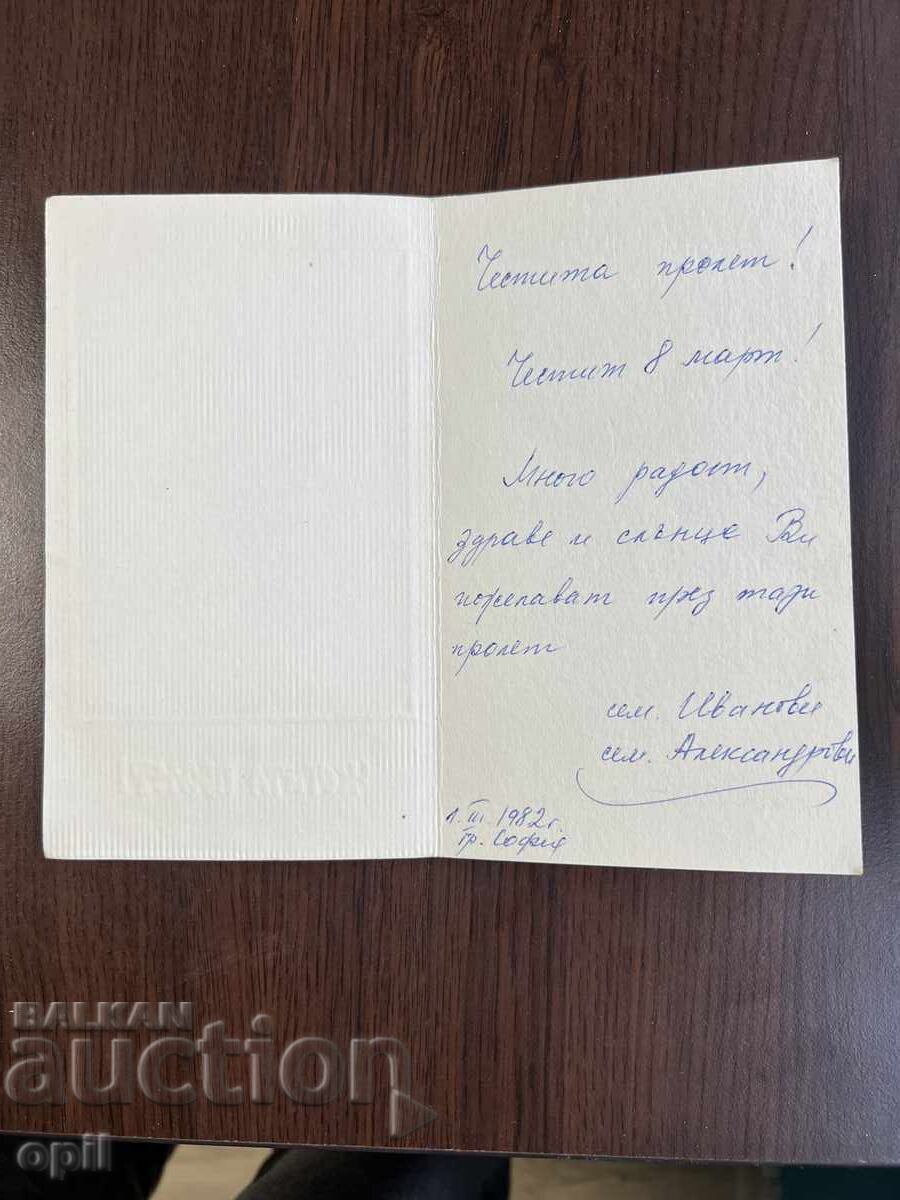 Честита пролет!
Честит 8 март!
Много радост,
здраве и слънце Ви
пожелават през тази
пролет
сем. Иванови
сем. Александрови
1. III. 1982 г.
гр. София
BALKAN
auction
opil